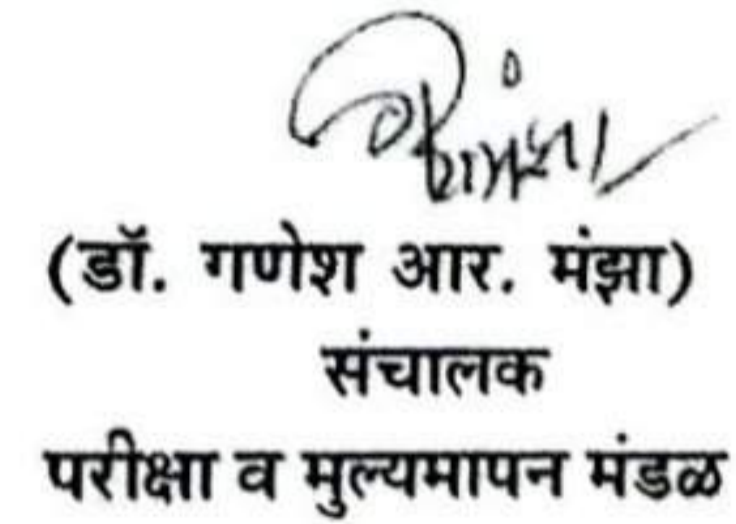 (डॉ. गणेश आर. मंझा)
संचालक
परीक्षा व मुल्यमापन मंडळ